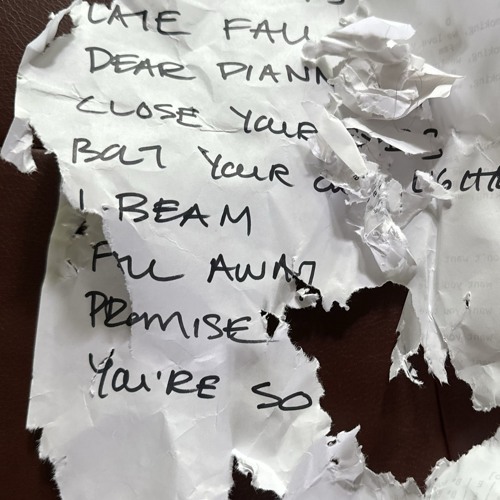 LATE FALL
DEAR DIANN
CLOSE YOUR
BOLT YOUR LIGHT
I-BEAM
FALL AWAY
PROMISE
YOU'RE SO